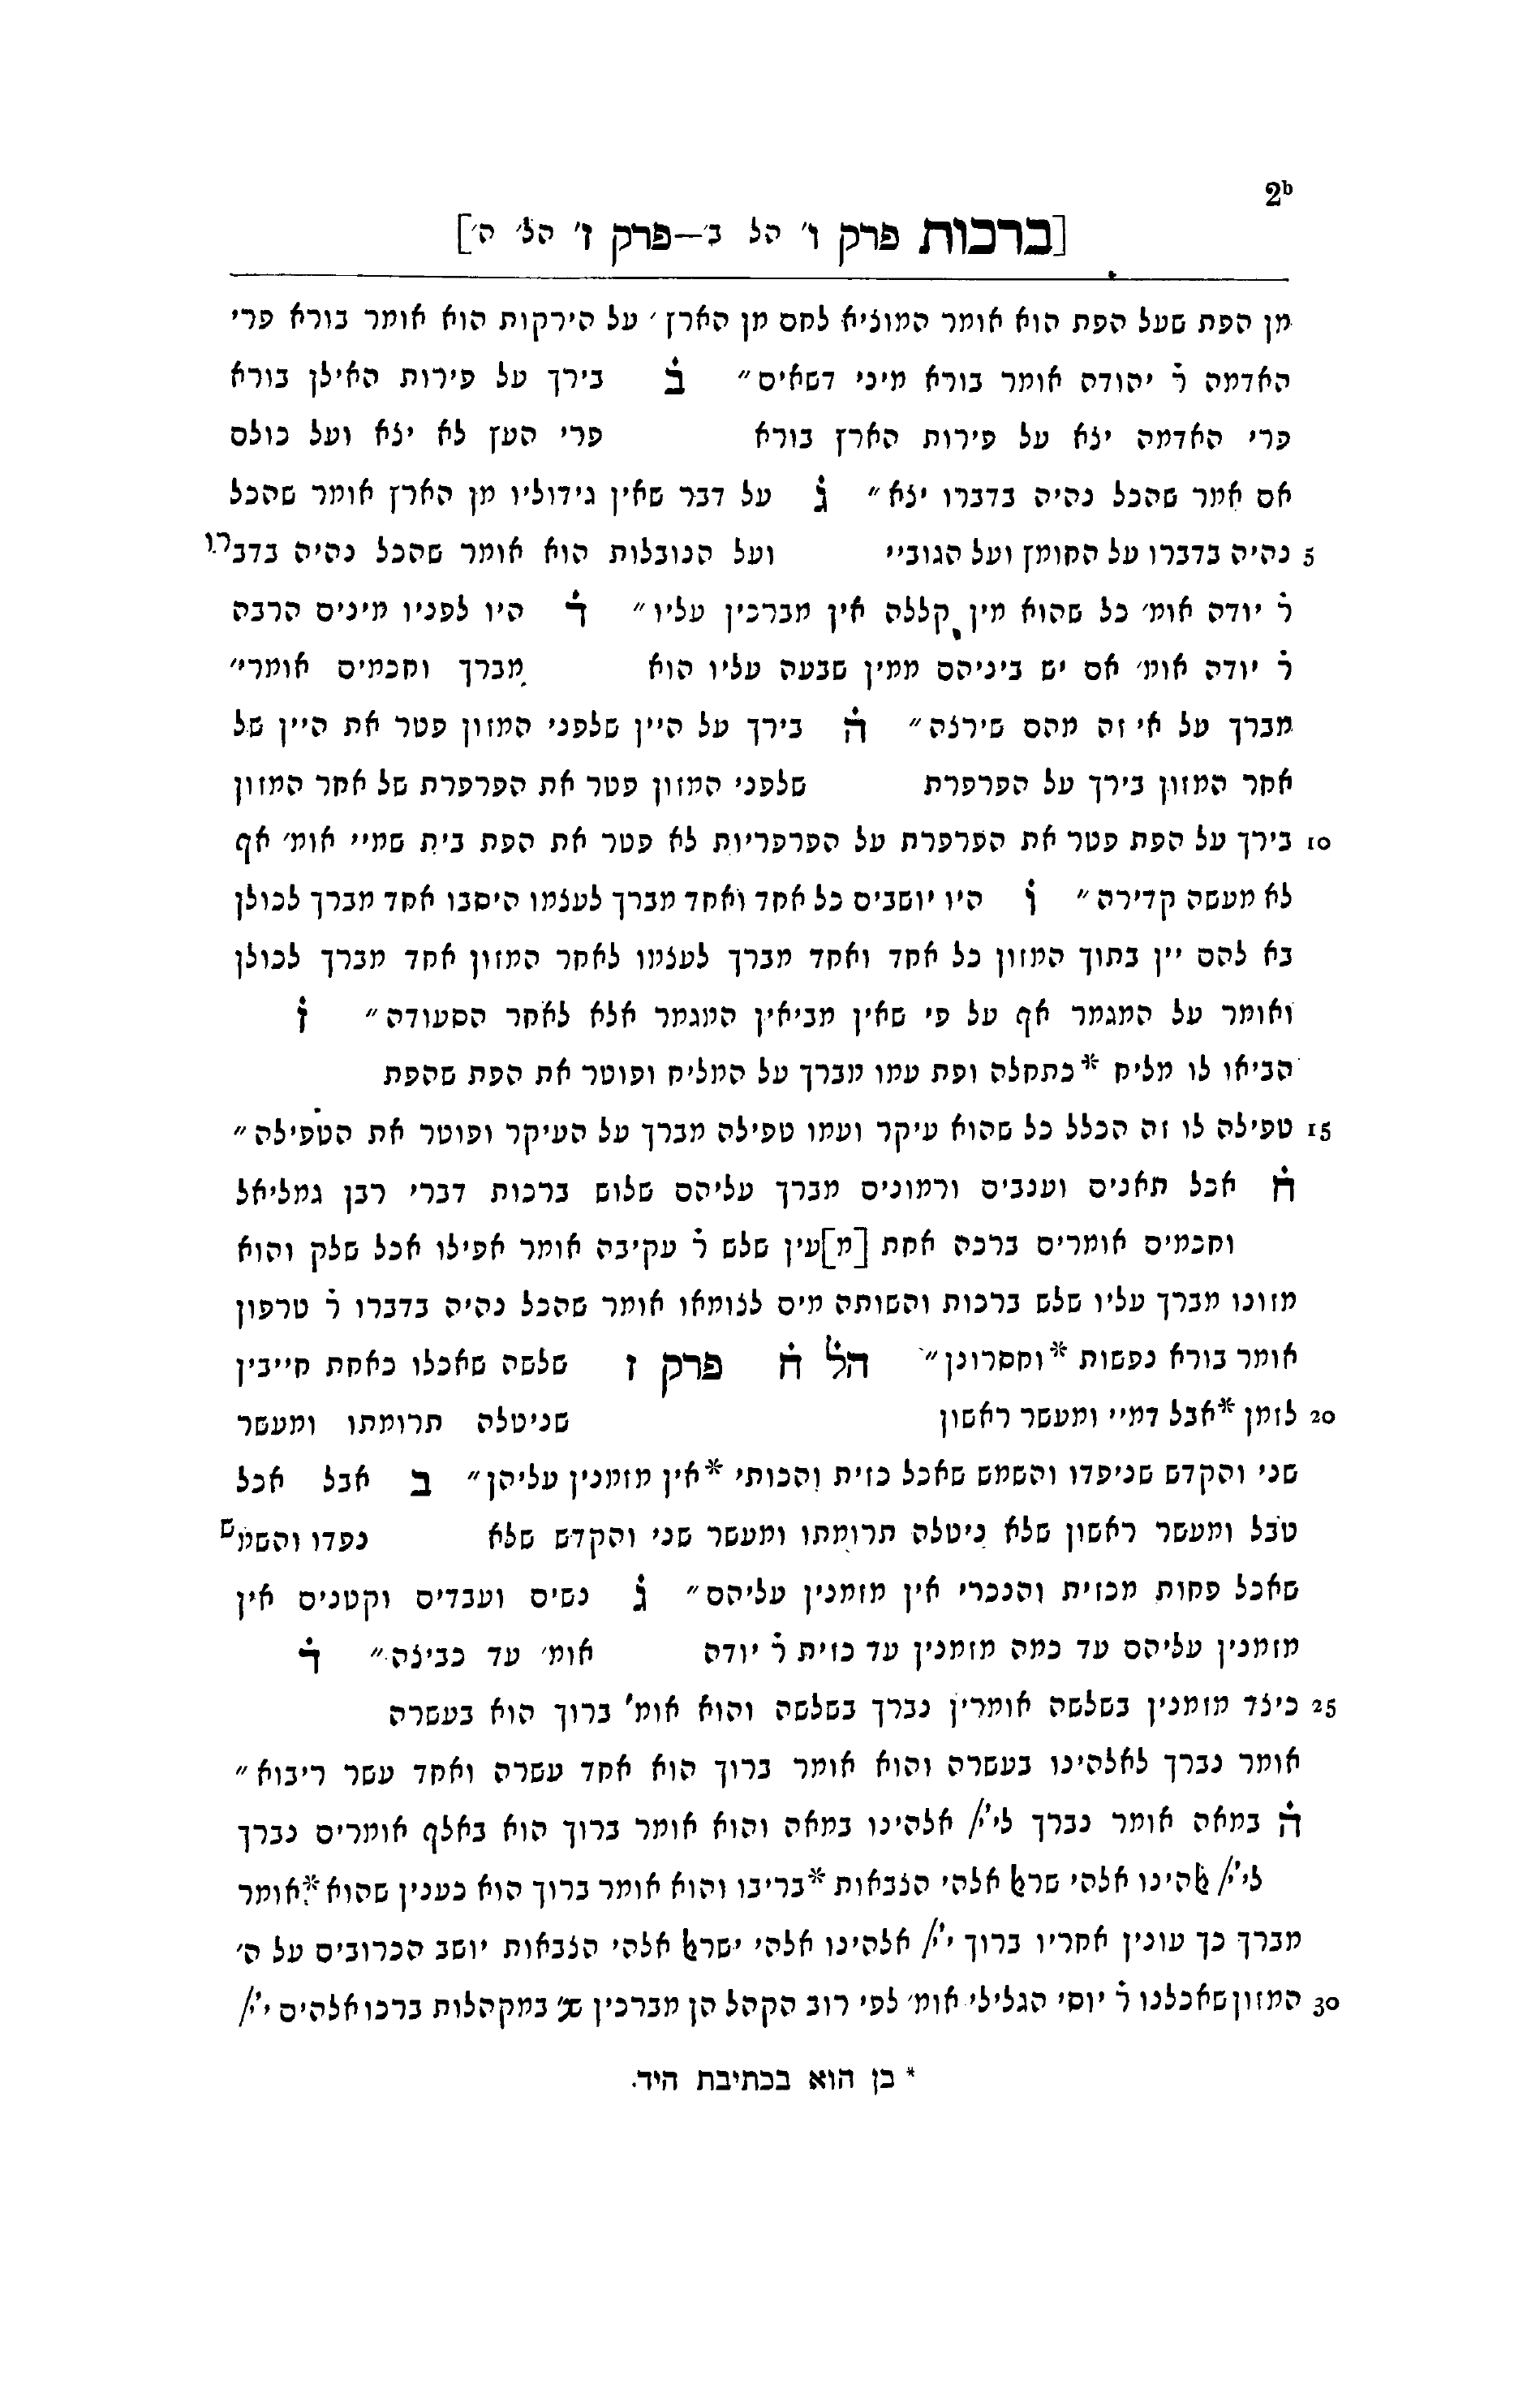 2b
[ברכות פרק ו׳ הל ב׳—פרק ז׳ הל׳ ה׳]
מן הפת שעל הפת הוא אומר המוציא לחם מן הארץ ׳ על הירקות הוא אומר בורא פרי
האדמה ר׳ יהודה אומר בורא מיני דשאים ״ ב בירך על פירות האילן בורא
פרי האדמה יצא על פירות הארץ בורא פרי העץ לא יצא ועל כולם
אם אמר שהכל נהיה בדברו יצא ״ ג על דבר שאין גידוליו מן הארץ אומר שהכל
5 נהיה בדברו על החומץ ועל הגוביי ועל הנובלות הוא אומר שהכל נהיה בדברו
ר׳ יודה אומ׳ כל שהוא מין קללה אין מברכין עליו ״ ד היו לפניו מינים הרבה
ר׳ יודה אומ׳ אם יש ביניהם ממין שבעה עליו הוא מברך וחכמים אומרי״
מברך על אי זה מהם שירצה ״ ה בירך על היין שלפני המזון פטר את היין של
אחר המזון בירך על הפרפרת שלפני המזון פטר את הפרפרת של אחר המזון
10 בירך על הפת פטר את הפרפרת על הפרפריות לא פטר את הפת בית שמיי אומ׳ אף
לא מעשה קדירה ״ ו היו יושבים כל אחד ואחד מברך לעצמו היסבו אחד מברך לכולן
בא להם יין בתוך המזון כל אחד ואחד מברך לעצמו לאחר המזון אחד מברך לכולן
ואומר על המגמר אף על פי שאין מביאין המגמר אלא לאחר הסעודה ״ ז
הביאו לו מליח *כתחלה ופת עמו מברך על המליח ופוטר את הפת שהפת
15 טפילה לו זה הכלל כל שהוא עיקר ועמו טפילה מברך על העיקר ופוטר את הטפילה ״
ח אכל תאנים וענבים ורמונים מברך עליהם שלוש ברכות דברי רבן גמליאל
וחכמים אומרים ברכה אחת [מ]עין שלש ר׳ עקיבה אומר אפילו אכל שלק והוא
מזונו מברך עליו שלש ברכות והשותה מים לצומאו אומר שהכל נהיה בדברו ר׳ טרפון
אומר בורא נפשות *וחסרונן ״ הל ח פרק ז שלשה שאכלו כאחת חייבין
20 לזמן *אבל דמיי ומעשר ראשון שניטלה תרומתו ומעשר
שני והקדש שניפדו והשמש שאכל כזית והכותי *אין מזמנין עליהן ״ ב אבל אכל
טבל ומעשר ראשון שלא ניטלה תרומתו ומעשר שני והקדש שלא נפדו והשמש
שאכל פחות מכזית והנכרי אין מזמנין עליהם ״ ג נשים ועבדים וקטנים אין
מזמנין עליהם עד כמה מזמנין עד כזית ר׳ יודה אומ׳ עד כביצה ״ ד
25 כיצד מזמנין בשלשה אומרין נברך בשלשה והוא אומ׳ ברוך הוא בעשרה
אומר נברך לאלהינו בעשרה והוא אומר ברוך הוא אחד עשרה ואחד עשר ריבוא ״
ה במאה אומר נברך לי׳י/ אלהינו במאה והוא אומר ברוך הוא באלף אומרים נברך
לי׳י/ ﭏהינו אלהי שרﭏ אלהי הצבאות *בריבו והוא אומר ברוך הוא כענין שהוא *אומר
מברך כך עונין אחריו ברוך י׳י/ אלהינו אלהי ישרﭏ אלהי הצבאות יושב הכרובים על ה׳
30 המזון שאכלנו ר׳ יוסי הגלילי אומ׳ לפי רוב הקהל הן מברכין במקהלות ברכו אלהים י׳י/
* כן הוא בכתיבת היד.